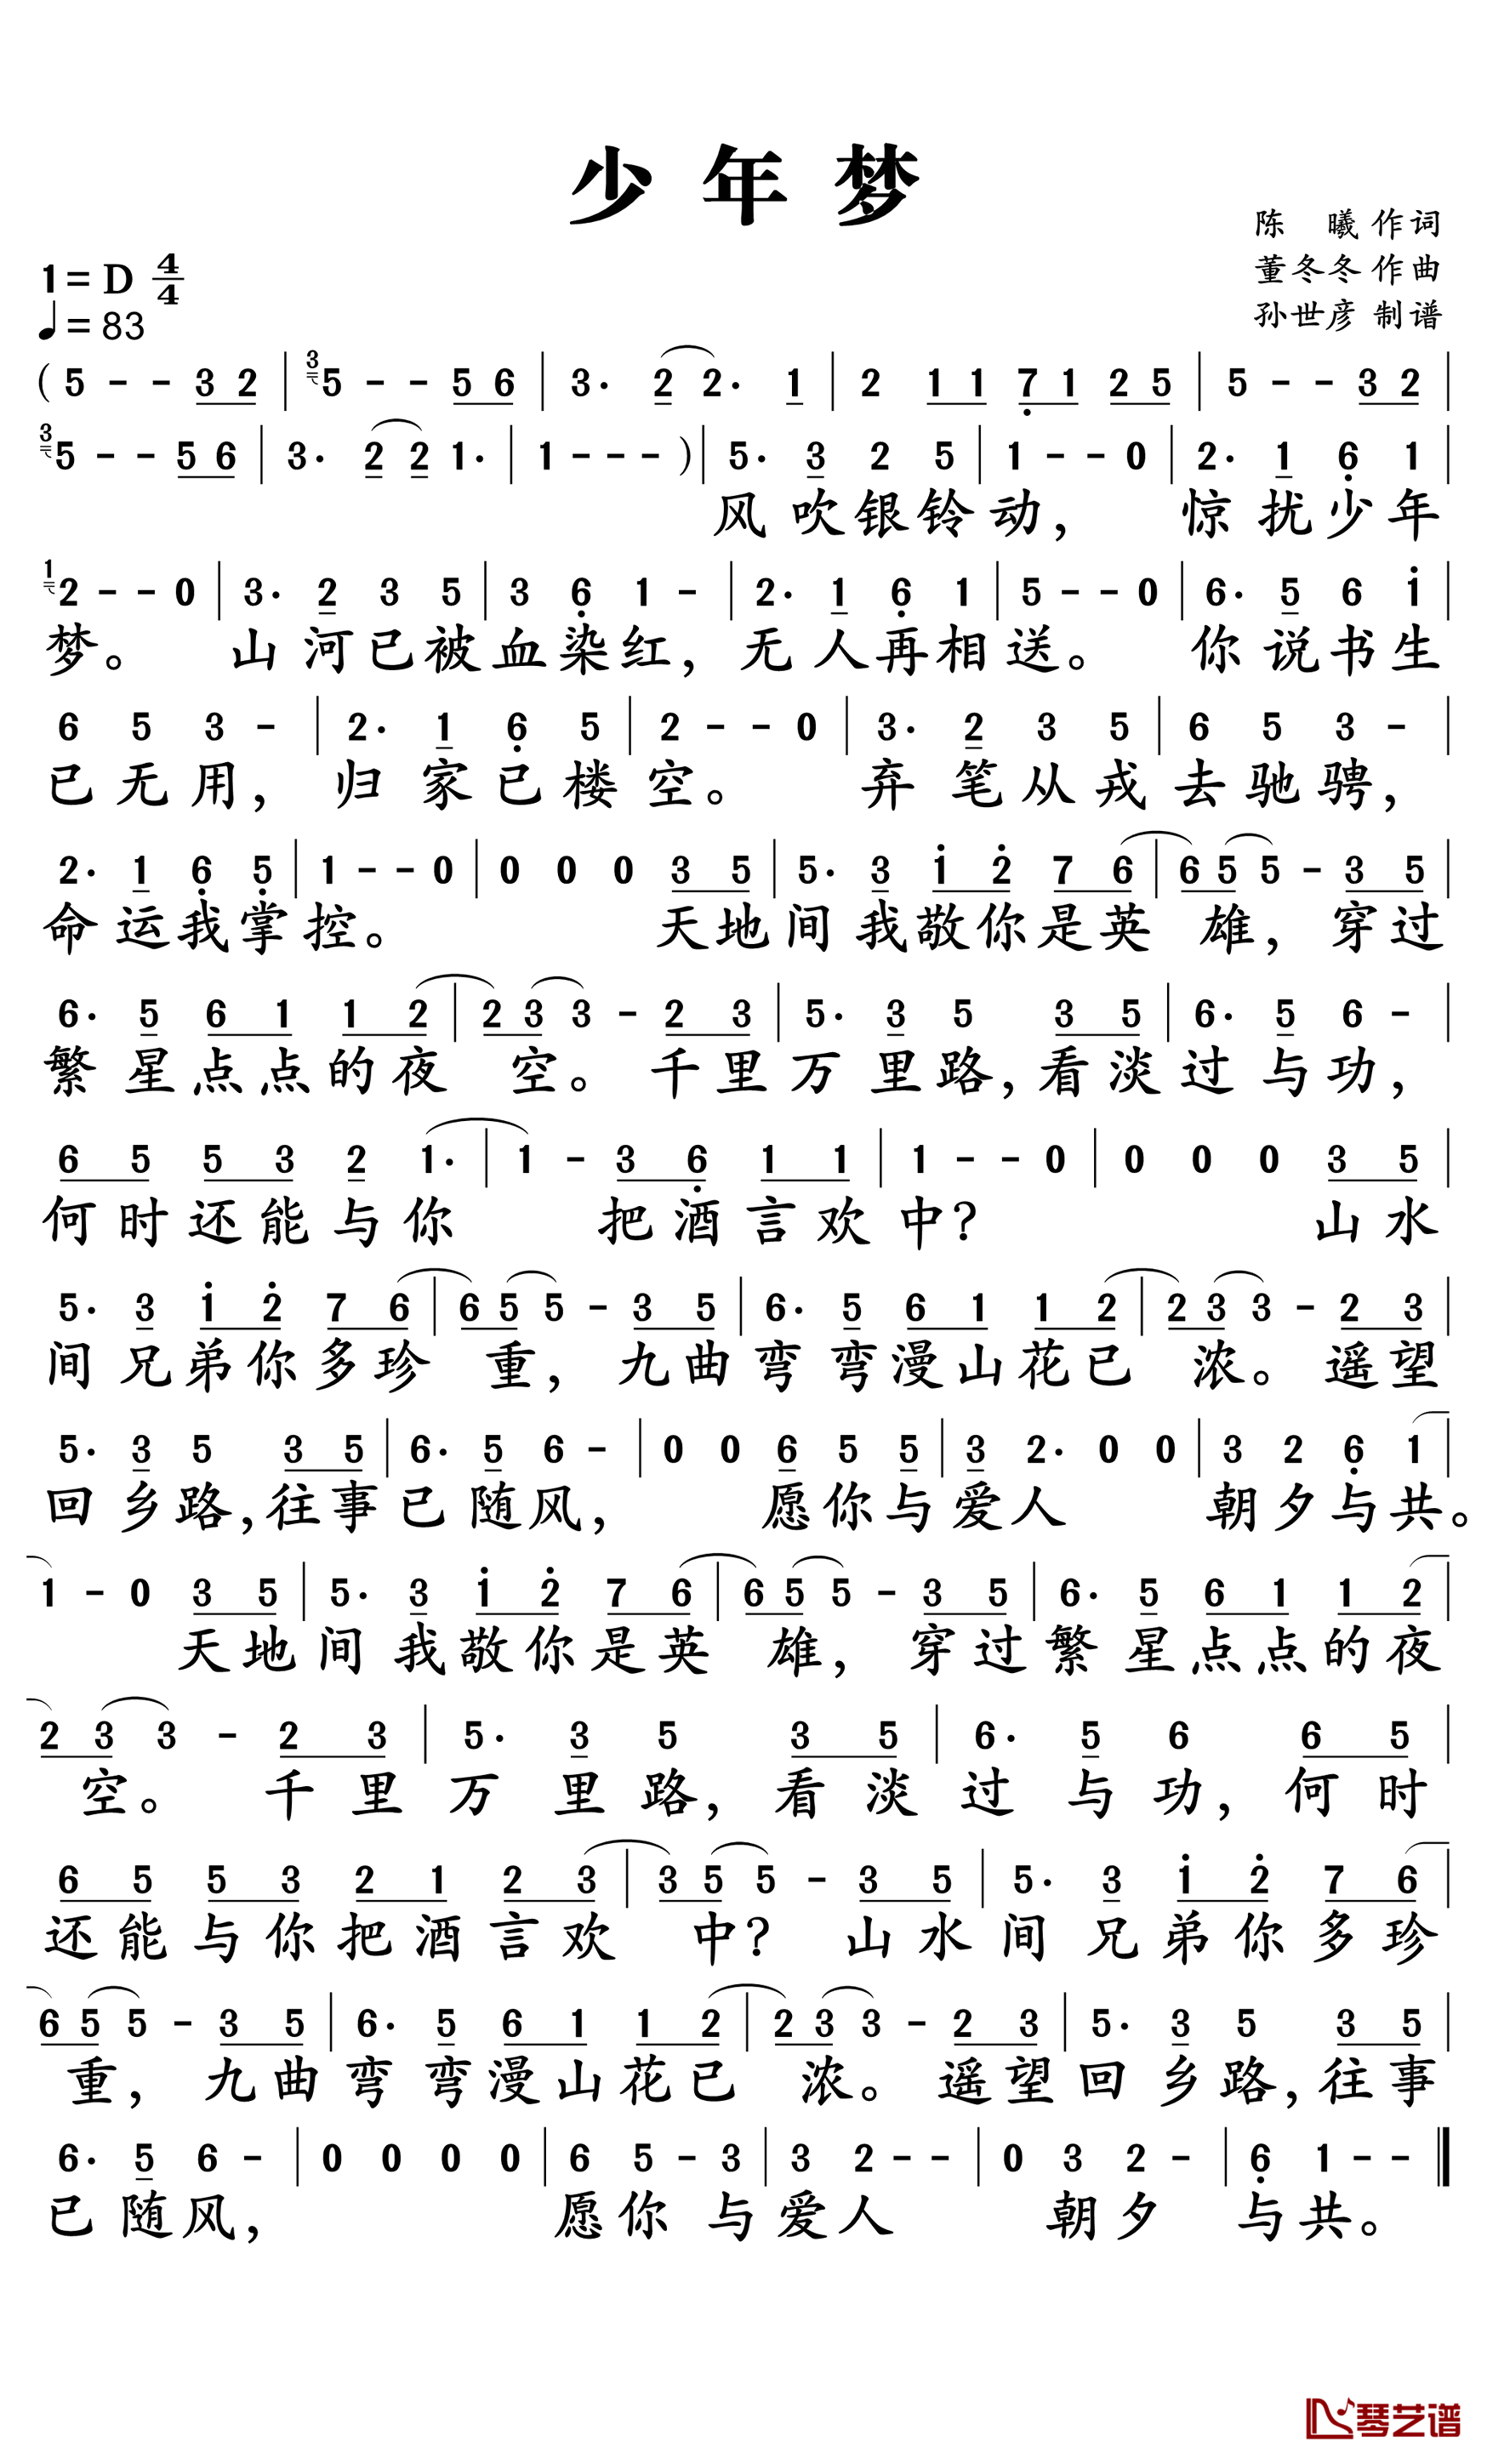 少年梦
陈 曦 作词
董冬冬 作曲
孙世彦 制谱
1= D 4/4
♩= 83
( 5 - - 3 2 | 3 5 - - 5 6 | 3· 2 2· 1 | 2 1 1 7 1 2 5 | 5 - - 3 2 |
3 5 - - 5 6 | 3· 2 2 1· | 1 - - - ) | 5· 3 2 5 | 1 - - 0 | 2· 1 6 1 |
风吹银铃动， 惊扰少年
1 2 - - 0 | 3· 2 3 5 | 3 6 1 - | 2· 1 6 1 | 5 - - 0 | 6· 5 6 1 |
梦。 山河已被血染红，无人再相送。 你说书生
6 5 3 - | 2· 1 6 5 | 2 - - 0 | 3· 2 3 5 | 6 5 3 - |
已无用， 归家已楼空。 弃笔从戎去驰骋，
2· 1 6 5 | 1 - - 0 | 0 0 0 3 5 | 5· 3 1 2 7 6 | 6 5 5 - 3 5 |
命运我掌控。 天地间我敬你是英 雄，穿过
6· 5 6 1 1 2 | 2 3 3 - 2 3 | 5· 3 5 3 5 | 6· 5 6 - |
繁星点点的夜 空。千里万里路，看淡过与功，
6 5 5 3 2 1· | 1 - 3 6 1 1 | 1 - - 0 | 0 0 0 3 5 |
何时还能与你 把酒言欢中？ 山水
5· 3 1 2 7 6 | 6 5 5 - 3 5 | 6· 5 6 1 1 2 | 2 3 3 - 2 3 |
间兄弟你多珍 重，九曲弯弯漫山花已 浓。遥望
5· 3 5 3 5 | 6· 5 6 - | 0 0 6 5 5 | 3 2· 0 0 | 3 2 6 1 |
回乡路，往事已随风， 愿你与爱人 朝夕与共。
1 - 0 3 5 | 5· 3 1 2 7 6 | 6 5 5 - 3 5 | 6· 5 6 1 1 2 |
天地间我敬你是英 雄，穿过繁星点点的夜
2 3 3 - 2 3 | 5· 3 5 3 5 | 6· 5 6 6 5 |
空。 千里万里路，看淡过与功，何时
6 5 5 3 2 1 2 3 | 3 5 5 - 3 5 | 5· 3 1 2 7 6 |
还能与你把酒言欢 中？山水间兄弟你多珍
6 5 5 - 3 5 | 6· 5 6 1 1 2 | 2 3 3 - 2 3 | 5· 3 5 3 5 |
重，九曲弯弯漫山花已 浓。遥望回乡路，往事
6· 5 6 - | 0 0 0 0 | 6 5 - 3 | 3 2 - - | 0 3 2 - | 6 1 - - ‖
已随风， 愿你与爱人 朝夕 与共。
琴艺谱